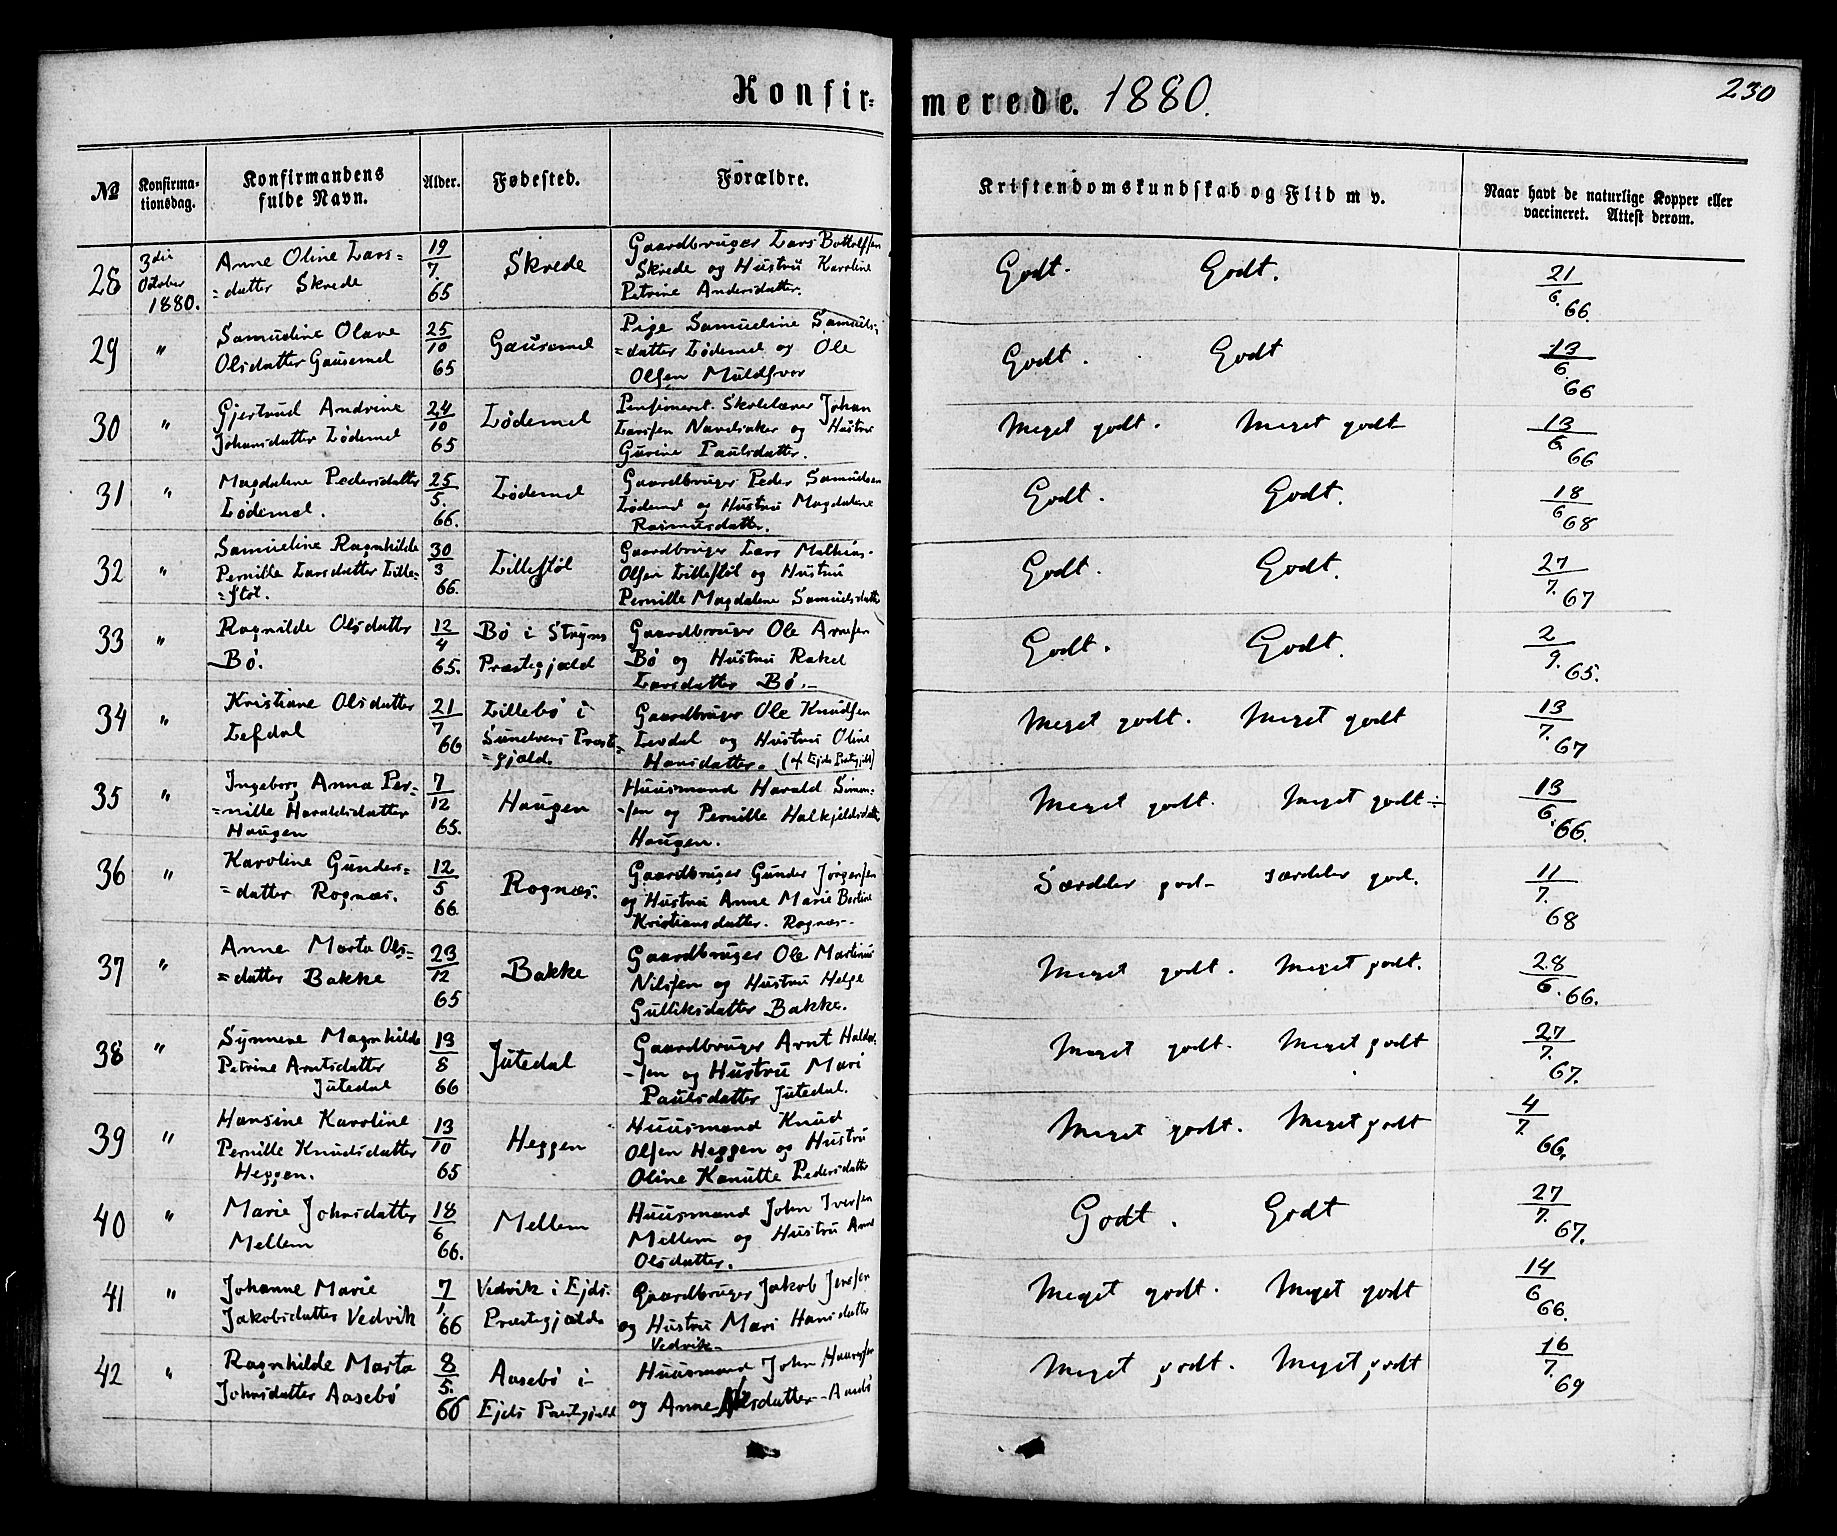 Konfir-
merede. 1880.
230
№
Konfirma-
tionsdag.
Konfirmandens
fulde Navn.
Alder.
Fødested.
Forældre.
Kristendomskundskab og Flid m v.
Naar havt de naturlige Kopper eller
vaccineret. Attest derom.
28 3die October 1880. Anne Oline Lars= =datter Skrede 19/7. 65 Skrede Gaardbruger Lars Bottolfsen Skrede og Hustru Karoline Petrine Andersdatter. Godt. Godt. 21/6. 66.
29 " Samueline Olave Olsdatter Gausemel 25/10 65 Gausemel Pige Samueline Samuels= =datter Lødemel og Ole Olsen Muldsvor Godt. Godt 13/6. 66
30 " Gjertrud Andrine Johansdatter Lødemel 24/10 65 Lødemel Pensioneret Skolelærer Johan Larssen Navelsaker og Hustru Gurine Paulsdatter. Meget godt. Meget godt 13/6 66
31 " Magdalene Pedersdatter Lødemel. 25/5. 66. Lødemel Gaardbruger Peder Samuelsen Lødemel og Hustru Magdalene Rasmusdatter. Godt. Godt. 18/6 68
32 " Samueline Ragnhilde Pernille Larsdatter Lille= =støl. 30/3 66. Lillestøl Gaardbruger Lars Mathias- Olsen Lillestøl og Hustru Pernille Magdalene Samuelsdatter Godt. Godt. 27/7. 67
33 " Ragnilde Olsdatter Bø. 12/4 65. Bø i Stryns Præstegjæld Gaardbruger Ole Arnesen Bø og Hustru Rakel Larsdatter Bø.- Godt. Godt. 2/9. 65.
34 " Kristiane Olsdatter Lefdal 21/7 66 Lillebø i Sundvens Præst= =gjæld. Gaardbruger Ole Knudsen Levdal og Hustru Oline Hansdatter. (af Ejds Præstegjæld) Meget godt. Meget godt 13/7. 67
35 " Ingeborg Anna Per= =nille Haraldsdatter Haugen 7/12 65. Haugen Huusmand Harald Simon= =sen og Pernille Halkjeldsdatter Haugen. Meget godt. Meget godt 13/6. 66.
36 " Karoline Gunders= =datter Rognæs. 12/5 66. Rognæs. Gaardbruger Gunder Jørgensen og Hustru Anne Marie Bertine Kristiansdatter. Rognæs- Særdeles god- særdeles god. 11/7. 68
37 " Anne Marta Ols= =datter Bakke 23/12 65 Bakke Gaardbruger Ole Martinus Nilssen og Hustru Helge Gulliksdatter Bakke. Meget godt. Meget godt. 28/6. 66.
38 " Synneve Magnhilde Petrine Arntsdatter Jutedal 13/8 66 Jutedal Gaardbruger Arnt Haldor= -sen og Hustru Mari Paulsdatter Jutedal. Meget godt. Meget godt 27/7. 67.
39 " Hansine Karoline Pernille Knudsdatter Heggen. 13/10 65 Heggen Huusmand Knud Olsen Heggen og Hustru Oline Kanutte Pedersdatter Meget godt. Meget godt 4/7. 66.
40 " Marie Johnsdatter Mellem 18/6 66. Mellem Huusmand John Iversen Mellem og Hustru Anne Olsdatter. Godt. Godt 27/7. 67.
41 " Johanne Marie Jakobsdatter Vedvik 7/1. 66 Vedvik i Ejds. Præstegjæld Gaardbruger Jakob Jenssen og Hustru Mari Hansdatter Vedvik- Meget godt. Meget godt 14/6 66.
42 " Ragnhilde Marta Johnsdatter Aasebø 8/5. 66 Aasebø i Ejds Præstegjæld Huusmand John og Anne Olsdatter- Aasebø Meget godt. Meget godt 16/7. 69